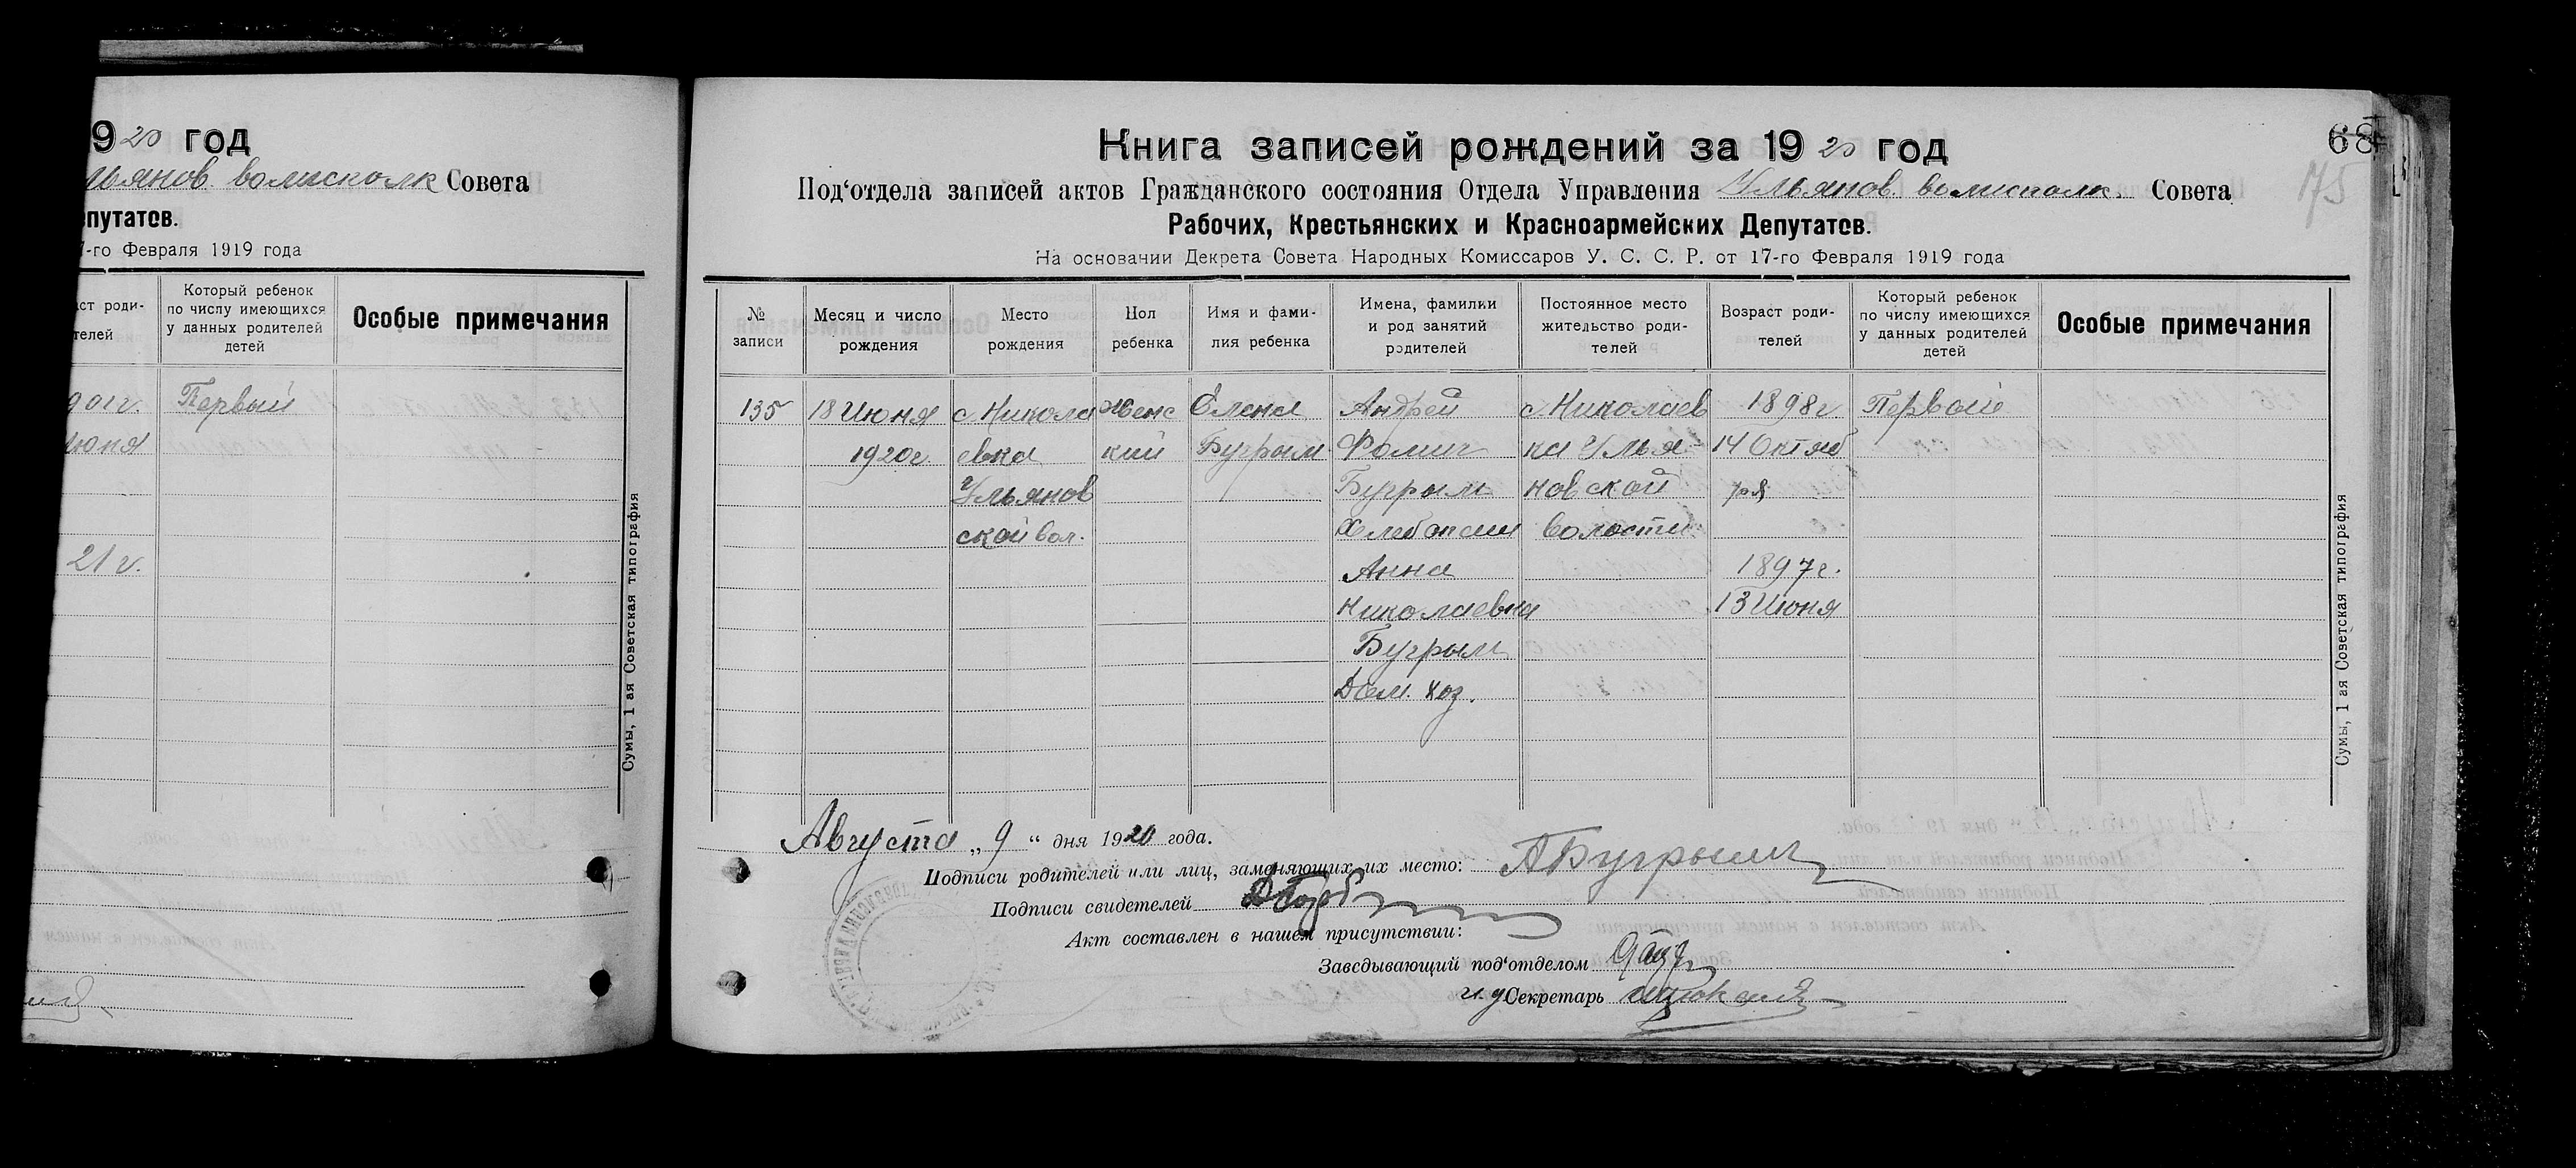 9 20 год
льянов. волисполк Совета
епутатов.
7-го Февраля 1919 года
ст роди-
телей
Который ребенок
по числу имеющихся
у данных родителей
детей
Особые примечания
901г. Первый
июня
21 г.
Сумы, 1 ая Советская типография
Книга записей рождений за 19 20 год
68
175
Под‘отдела записей актов Гражданского состояния Отдела Управления Ульянов. волисполк. Совета
Рабочих, Крестьянских и Красноармейских Депутатов.
На основании Декрета Совета Народных Комиссаров У. С. С. Р. от 17-го Февраля 1919 года
№
записи
Месяц и число
рождения
Место
рождения
Пол
ребенка
Имя и фами-
лия ребенка
Имена, фамилии
и род занятий
родителей
Постоянное место
жительство роди-
телей
Возраст роди-
телей
Который ребенок
по числу имеющихся
у данных родителей
детей
Особые примечания
135 18 Июня с. Никола женс Елена Андрей с. Николаев 1898г Первый
1920г. евка кий Бугрым Фомич ка Улья- 14 Октяб
Ульянов Бугрым новской ря
ской вол. Хлебопаш волости
Анна 1897г.
Николаевна 13 Июня
Бугрым
Дом. хоз.
Сумы, 1 ая Советская типография
Августа „ 9 “ дня 1920 года.
Подписи родителей или лиц, заменяющих их место: А Бугрым
Подписи свидетелей
Акт составлен в нашем присутствии:
Заведывающий под‘отделом
и. д. Секретарь